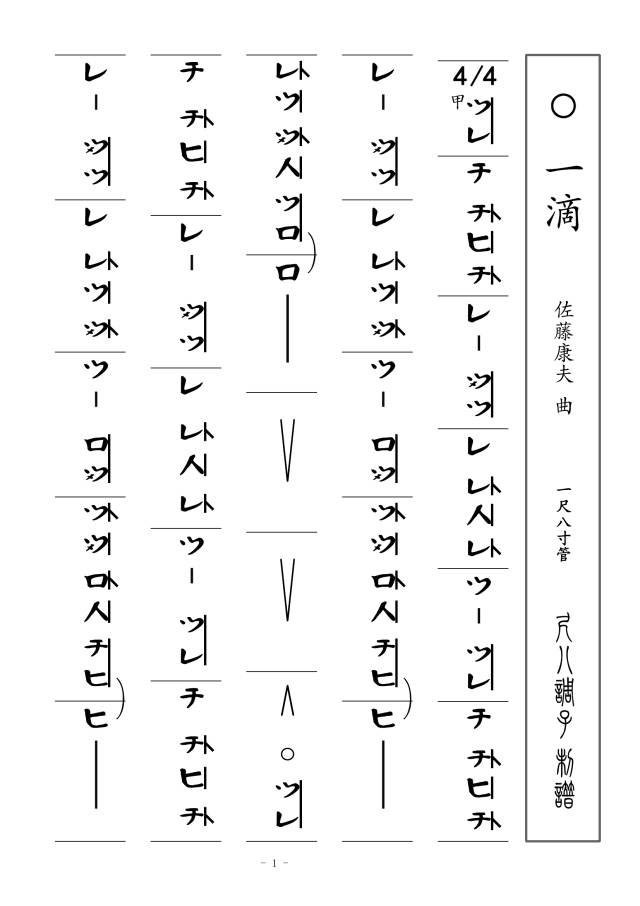 ○ 一滴 佐藤康夫 曲 一尺八寸管 尺八調子 制譜
4/4
甲 ツレ チ チヒチ レー ツツ レ レ人レ ツー ツレ チ チヒチ
レー ツツ レ レツツ ツー ロツ ツツロ人チヒ ヒ
レツツ人ツロ ロ ○ ツレ
チ チヒチ レー ツツ レ レ人レ ツー ツレ チ チヒチ
レー ツツ レ レツツ ツー ロツ ツツロ人チヒ ヒ
- 1 -